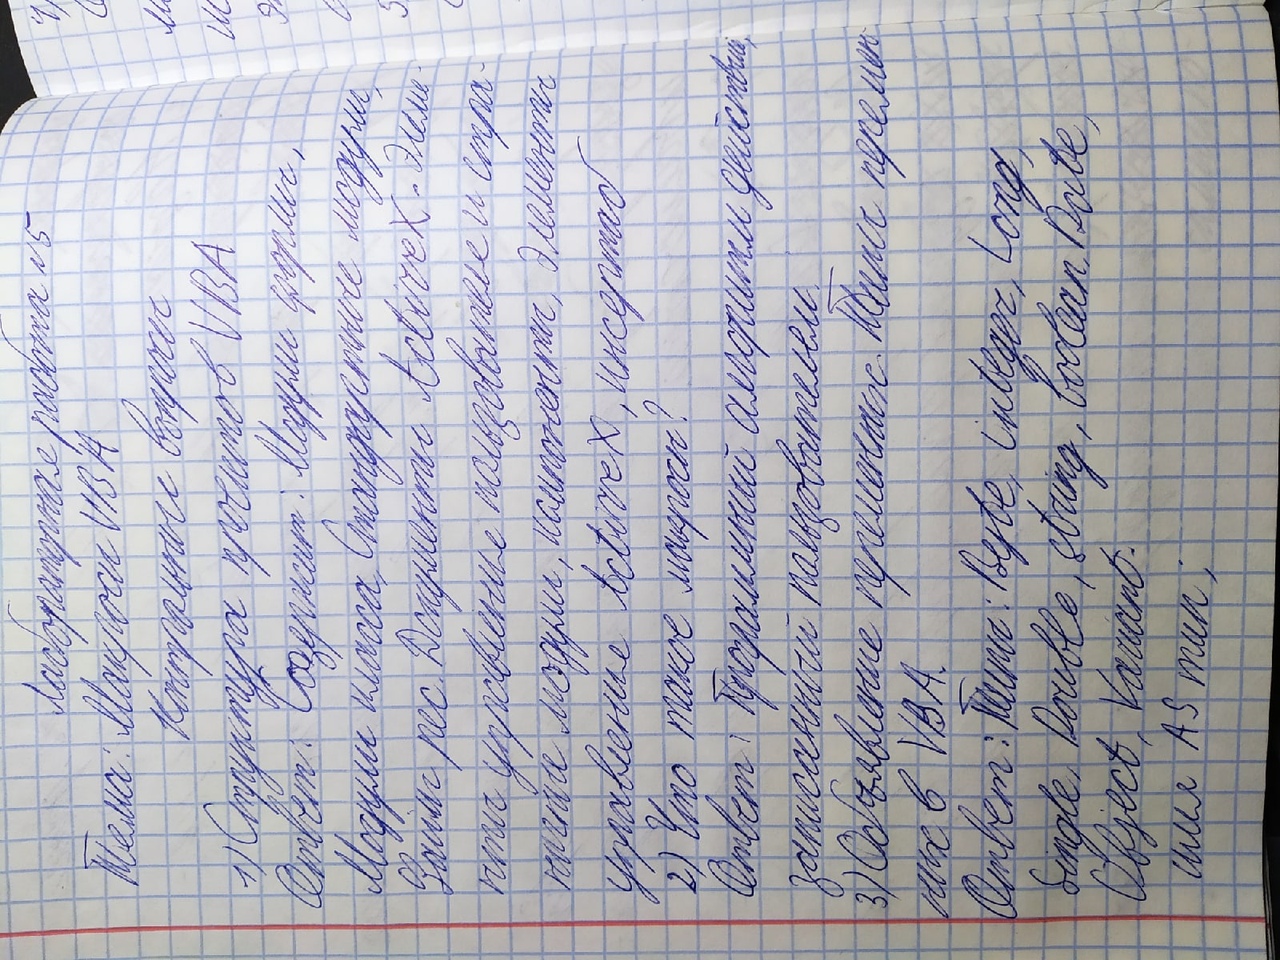 Лабораторная работа №5
Тема: Макросы VBA
Контрольные вопросы
1) Структура проектов VBA
Ответ: Содержит: Модули формы,
Модули класса, Стандартные модули,
рес. Документы ActiveX. Элеме-
нты управление пользовательское и стра-
ница модули, компоненты, Элементы
управление ActiveX, инсертаб
2) Что такое макросы?
Ответ: Програмный алгоритм действий,
записанный пользователем.
3) Объявление переменных. Типы перемен
ных в VBA.
Ответ: Типы: Byte, integer, Long,
Single, Double, string, boolean. Date,
Object, Variant.
имя AS тип;